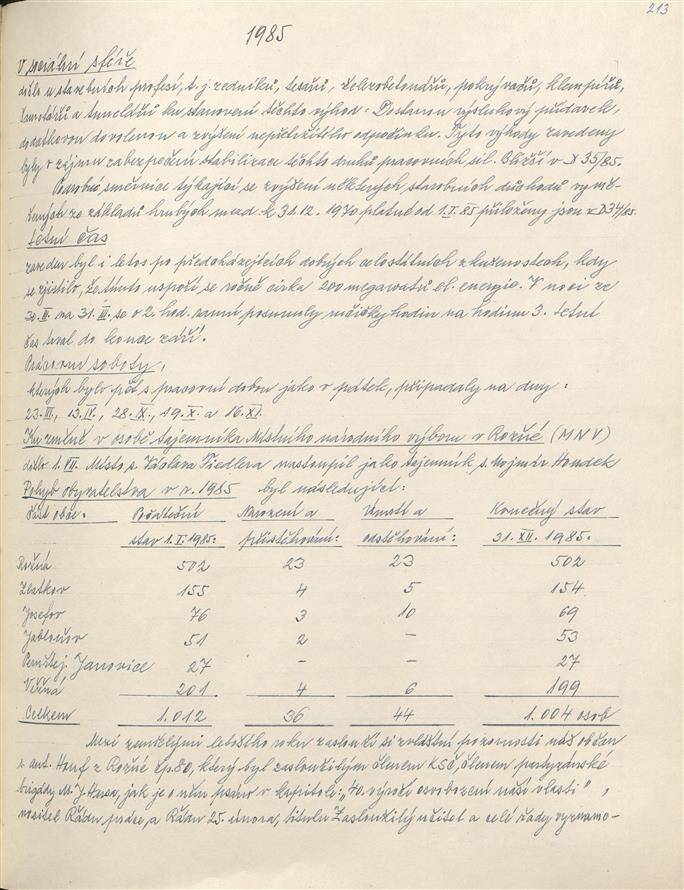 213
1985
V sociální sféře
došlo u stavebních profesí, t.j. zedníků, tesařů, železobetonářů, pokrývačů, klempířů,
lamačů a tunelářů ku stanovení těchto výhod. Dostanou výsluhový přídavek,
dodatkovou dovolenou a zvýšení nepřetržitého odpočinku. Tyto výhody zavedeny
byly v zájmu zabezpečení stabilizace těchto druhů pracovních sil. Bližší v D 35/85.
Podrobné směrnice týkající se zvýšení některých starobních důchodů vymě-
řených ze základů hrubých mezd k 31.12. 1970 platné od 1.I.85 přiloženy jsou v D34/85.
Letní čas
zaveden byl i letos po předcházejících dobrých celostátních zkušenostech, kdy
se zjistilo, že tímto uspoří se ročně cirka 200 megawatů el. energie. V noci ze
30.III. na 31.III. se o 2 hod. ranní posunuly ručičky hodin na hodinu 3. Letní
čas trval do konce září.
Pracovní soboty,
kterých bylo pět s pracovní dobou jako v pátek, připadaly na dny:
23.III., 13.IV., 28.IX., 19.X. a 16.XI.
Ku změně v osobě tajemníka Místního národního výboru v Rožné (MNV)
došlo 1.VII. Místo s. Václava Fiedlera nastoupil jako tajemník s. Mojmír Houdek
Pohyb obyvatelstva v r. 1985 byl následující:
Část obce: Počáteční Narození a Úmrtí a Konečný stav
stav 1.I.1985: přistěhování: odstěhování: 31.XII.1985:
Rožná 502 23 23 502
Zlatkov 155 4 5 154
Josefov 76 3 10 69
Jabloňov 51 2 – 53
Pernštej. Janovice 27 – – 27
Věžná 201 4 6 199
Celkem 1.012 36 44 1.004 osob
Mezi zemřelými letošního roku zaslouží si zvláštní pozornosti náš občan
s. ant. Honf z Rožné čp. 80, který byl zasloužilým členem KSČ, členem partyzánské
brigády M. J. Husa, jak je o něm psáno v kapitole: „40. výročí osvobození naší vlasti",
nositel Řádu práce, a Řádu 25. února, titulu Zasloužilý učitel a celé řady význame-